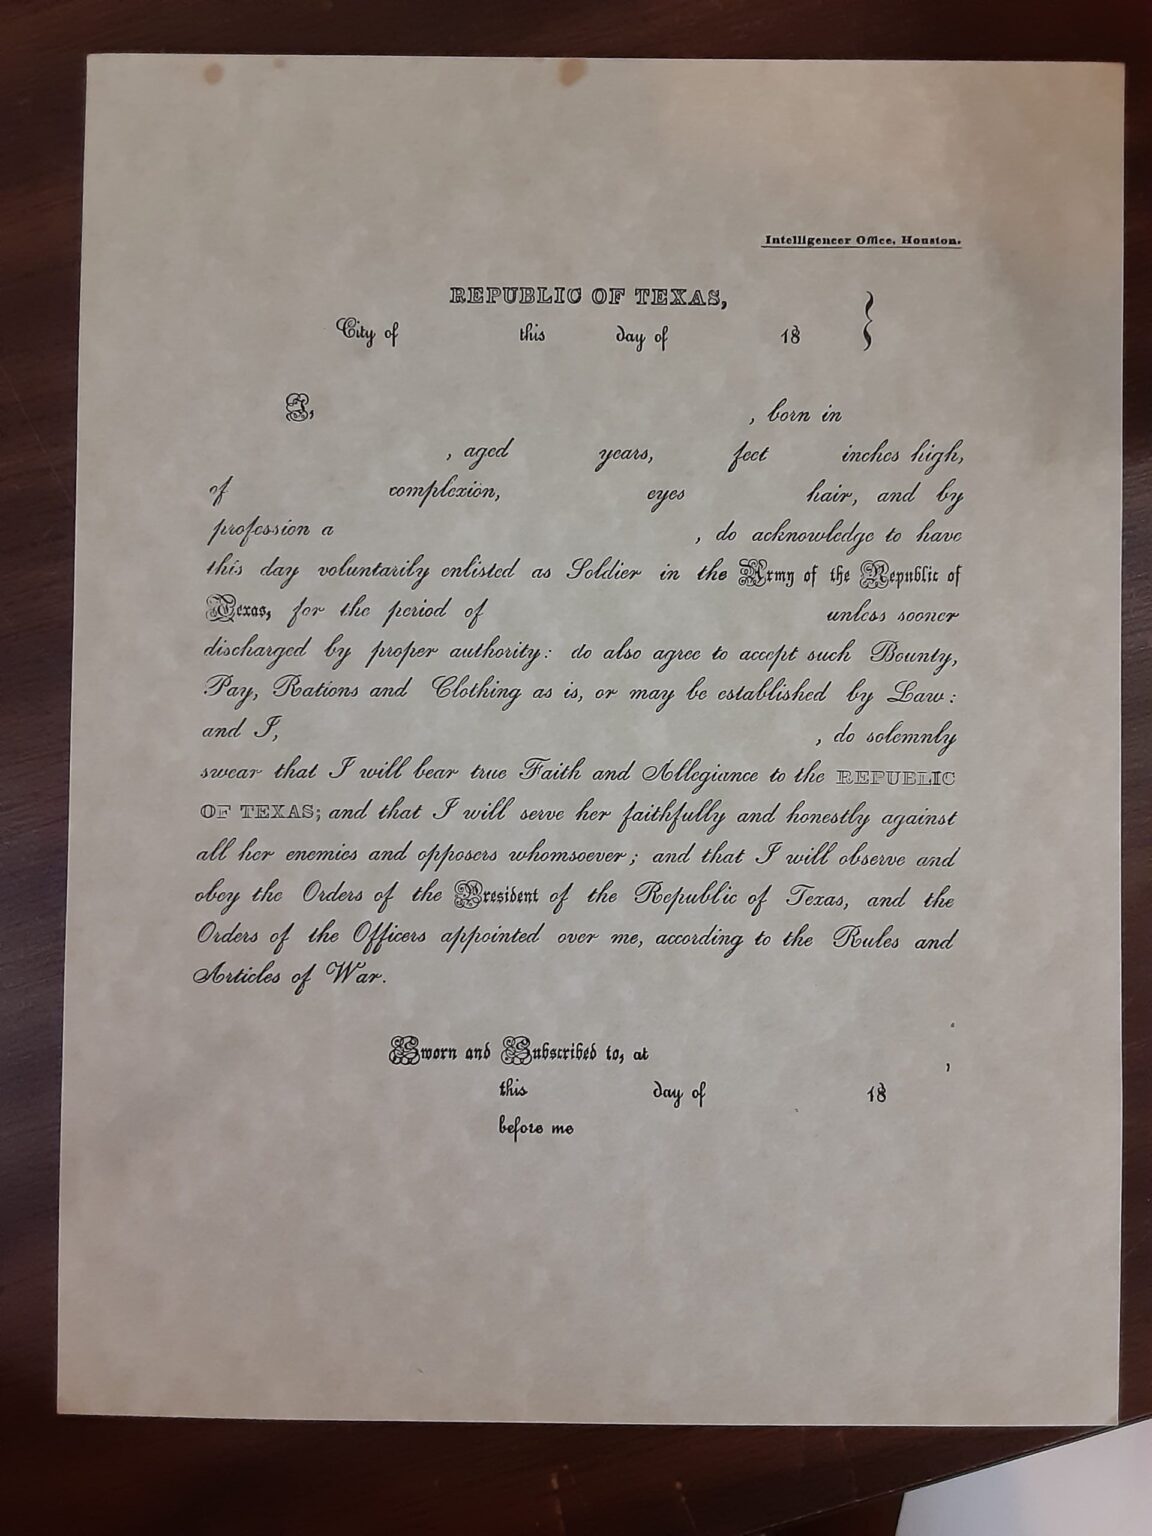 Intelligencer Office, Houston.
REPUBLIC OF TEXAS,
City of this day of 18 }
I, , born in
, aged years, feet inches high,
of complexion, eyes hair, and by
profession a , do acknowledge to have
this day voluntarily enlisted as Soldier in the Army of the Republic of
Texas, for the period of unless sooner
discharged by proper authority: do also agree to accept such Bounty,
Pay, Rations and Clothing as is, or may be established by Law:
and I, , do solemnly
swear that I will bear true Faith and Allegiance to the REPUBLIC
OF TEXAS; and that I will serve her faithfully and honestly against
all her enemies and opposers whomsoever; and that I will observe and
obey the Orders of the President of the Republic of Texas, and the
Orders of the Officers appointed over me, according to the Rules and
Articles of War.
Sworn and Subscribed to, at ,
this day of 18
before me